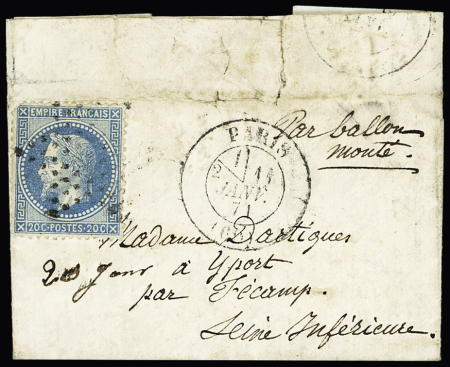 EMPIRE FRANÇAIS
20C·POSTES·20C
PARIS
11
JANV.
71
(60)
Par ballon
monté.
Madame
à Yport
par Fécamp.
Seine Inférieure.